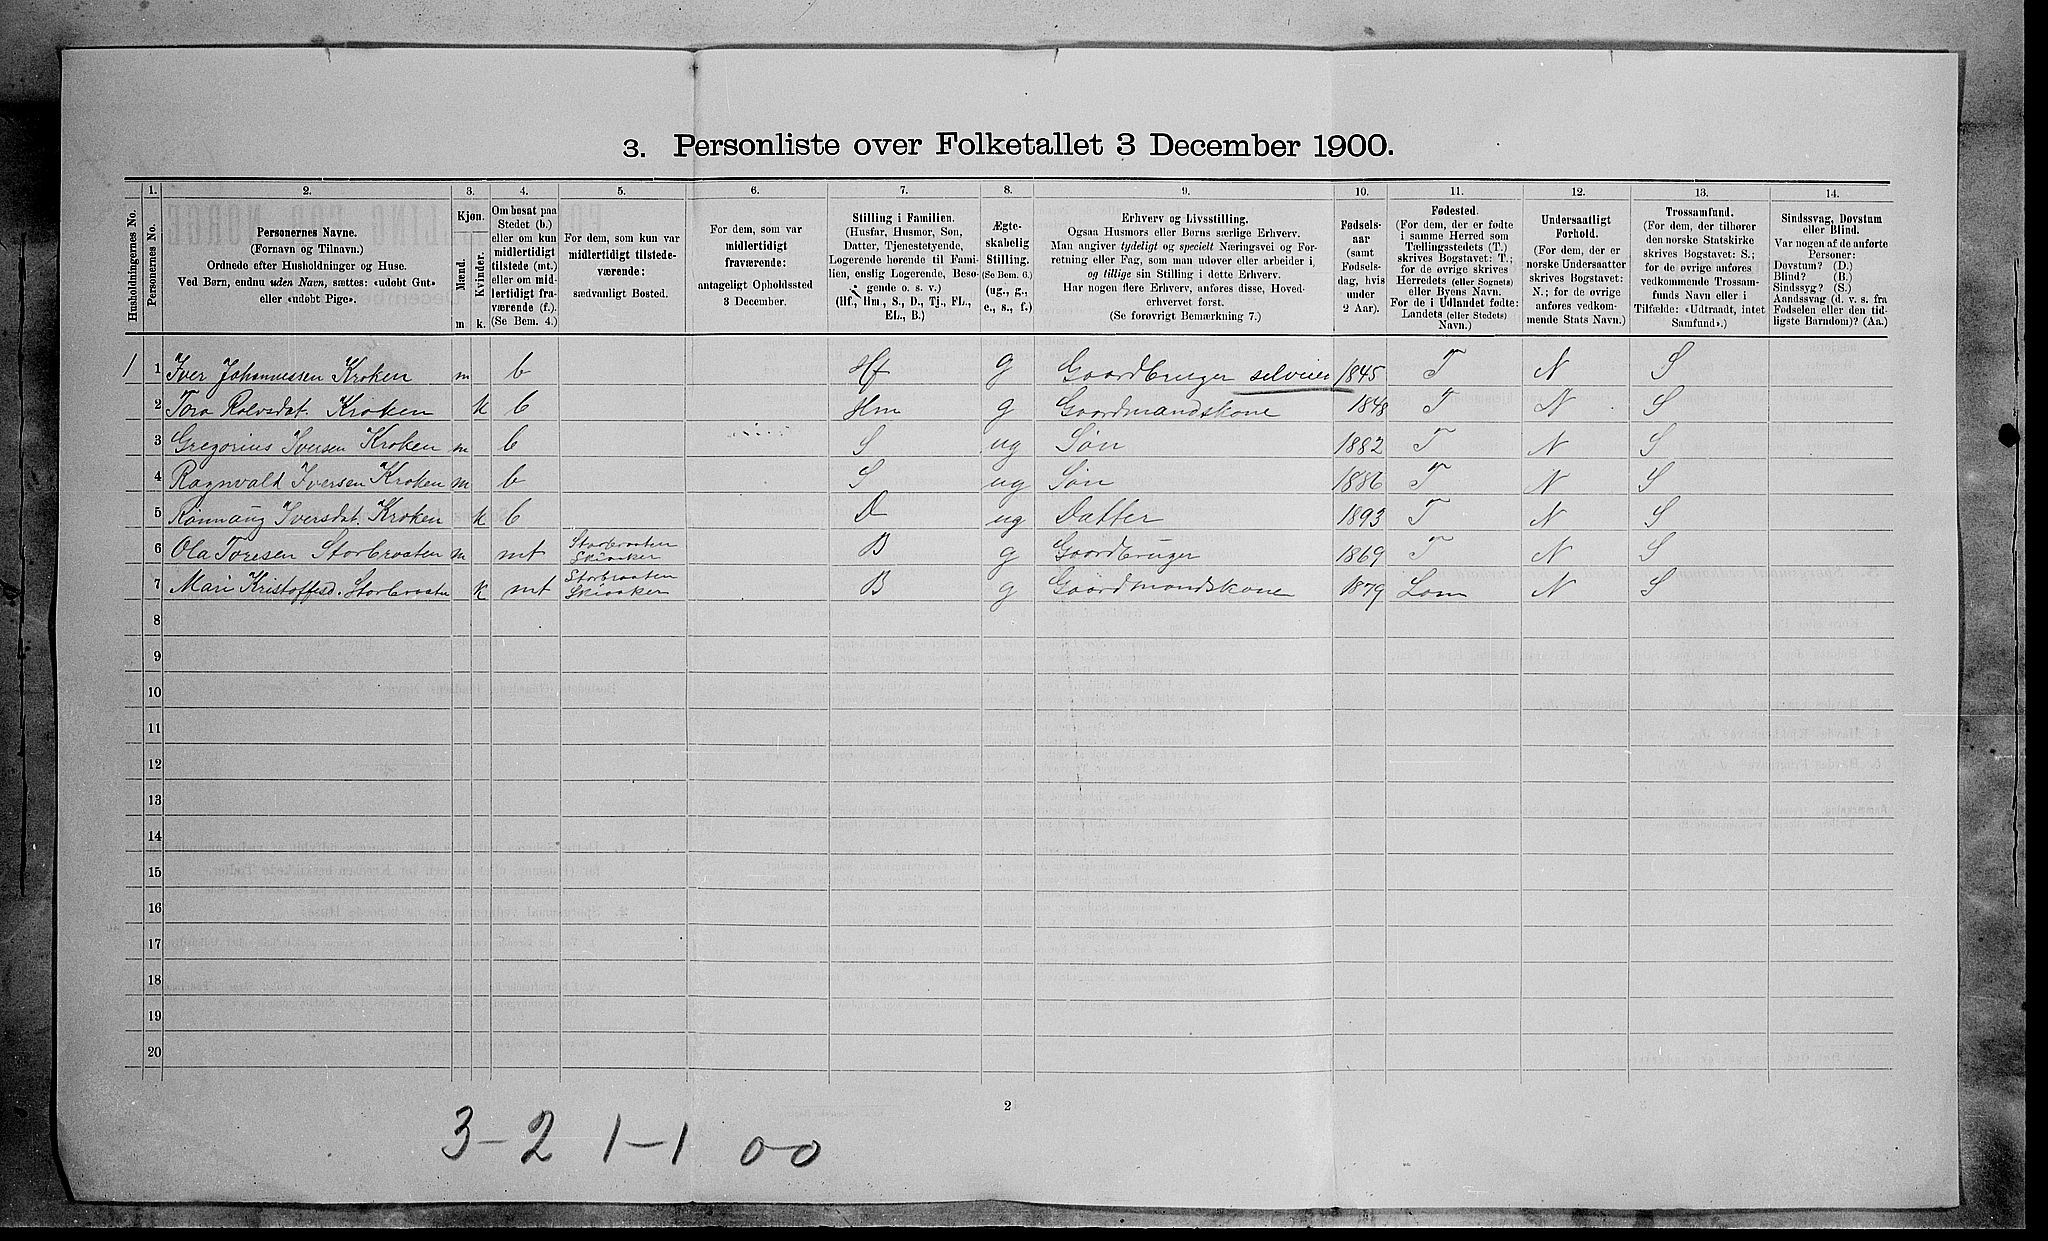 3. Personliste over Folketallet 3 December 1900.
1. 2. 3. 4. 5. 6. 7. 8. 9. 10. 11. 12. 13. 14.
Husholdningernes No.
Personernes No.
Personernes Navne.
(Fornavn og Tilnavn.)
Ordnede efter Husholdninger og Huse.
Ved Børn, endnu uden Navn, sættes: «udebt Gut»
eller «udebt Pige».
Kjøn.
Mænd.
Kvinder.
m k.
Om bosat paa
Stedet (b.)
eller om kun
midlertidigt
tilstede (mt.)
eller om mid-
lertidigt fra-
værende (f.).
(Se Bem. 4.)
For dem, som kun var
midlertidigt tilstede-
værende:
sædvanligt Bosted.
For dem, som var
midlertidigt
fraværende:
antageligt Opholdssted
3 December.
Stilling i Familien.
(Husfar, Husmor, Søn,
Datter, Tjenestetyende,
Logerende hørende til Fami-
lien, enslig Logerende, Beso-
gende o. s. v.)
(Hf., Hm., S., D., Tj., FL.,
EL., B.)
Ægte-
skabelig
Stilling.
(Se Bem. 6.)
(ug., g.,
e., s., f.)
Erhverv og Livsstilling.
Ogsaa Husmors eller Børns særlige Erhverv.
Man angiver tydeligt og specielt Næringsvei og For-
retning eller Fag, som man udøver eller arbeider i,
og tillige sin Stilling i dette Erhverv.
Har nogen flere Erhverv, anføres disse, Hoved-
erhvervet først.
(Se forøvrigt Bemærkning 7.)
Fødsels-
aar
(samt
Fødsels-
dag, hvis
under
2 Aar).
Fødested.
(For dem, der er fødte
i samme Herred som
Tællingsstedets (T.)
skrives Bogstavet: T.;
for de øvrige skrives
Herredets (eller Sognets)
eller Byens Navn.
For de i Udlandet fødte:
Landets (eller Stedets)
Navn.)
Undersaatligt
Forhold.
(For dem, der er
norske Undersaatter
skrives Bogstavet:
N.; for de øvrige
anføres vedkom-
mende Stats Navn.)
Trossamfund.
(For dem, der tilhører
den norske Statskirke
skrives Bogstavet: S.;
for de øvrige anføres
vedkommende Trossam-
funds Navn eller i
Tilfælde: «Udtraadt, intet
Samfund».)
Sindssvag, Døvstum
eller Blind.
Var nogen af de anførte
Personer:
Døvstum? (D.)
Blind? (B.)
Sindssyg? (S.)
Aandssvag (d. v. s. fra
Fødselen eller den tid-
ligste Barndom)? (Aa.)
1 1 Iver Johannessen Kroken m b Hf g Gaardbruger selveier 1845 T N S
2 Tora Rolvsdat. Kroken k b Hm g Gaardmandskone 1848 T N S
3 Gregorius Iversen Kroken m b S ug Søn 1882 T N S
4 Ragnvald Iversen Kroken m b S ug Søn 1886 T N S
5 Rønnaug Iversdat. Kroken k b D ug Datter 1893 T N S
6 Ola Toresen Storbraaten m mt Storbraaten Skiaaker B g Gaardbruger 1869 T N S
7 Mari Kristoffesd. Storbraaten k mt Storbraaten Skiaaker B g Gaardmandskone 1879 Lom N S
8
9
10
11
12
13
14
15
16
17
18
19
20
2
3-2 1-1 0-0